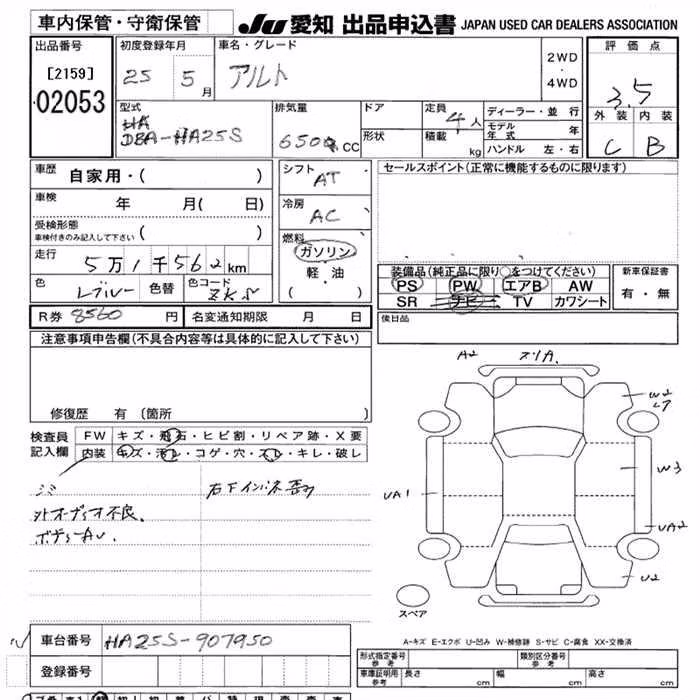 車内保管・守衛保管 JU 愛知 出品申込書 JAPAN USED CAR DEALERS ASSOCIATION
出品番号 初度登録年月 車名・グレード 評価点
[2159] 25 5月 アルト 2WD・4WD 3.5
02053
型式 排気量 ドア 定員 4人 ディーラー・並行 外装 内装
DBA-HA25S 650 CC 形状 積載 kg モデル年式 年 C B
ハンドル 左・右
車歴 自家用・( ) シフト AT セールスポイント(正常に機能するものに限ります)
車検 年 月( 日) 冷房 AC
受検形態
車検付きのみ記入して下さい ( ) 燃料
走行 5万1千562km ガソリン
軽・油
( )
装備品(純正品に限り○をつけてください) 新車保証書
色 レブルー 色替 色コード ZKS PS PW エアB AW 有・無
SR ナビ TV カワシート
R券 8560円 名変通知期限 月 日 後日品
注意事項申告欄(不具合内容等は具体的に記入して下さい)
修復歴 有 (箇所 )
検査員記入欄 FW キズ・飛石・ヒビ割・リペア跡・X要
内装 キズ・汚レ・コゲ・穴・スレ・キレ・破レ
シミ
外オーディオ不良、
ボデーAU.
A2 スリA.
W2
W3
UA1
UA2
U2
スペア
A-キズ E-エクボ U-凹み W-補修跡 S-サビ C-腐食 XX-交換済
車台番号 HA25S-907950
登録番号
形式指定番号 参考 類別区分番号 参考
車庫証明用 参考 長さ cm 幅 cm 高さ cm